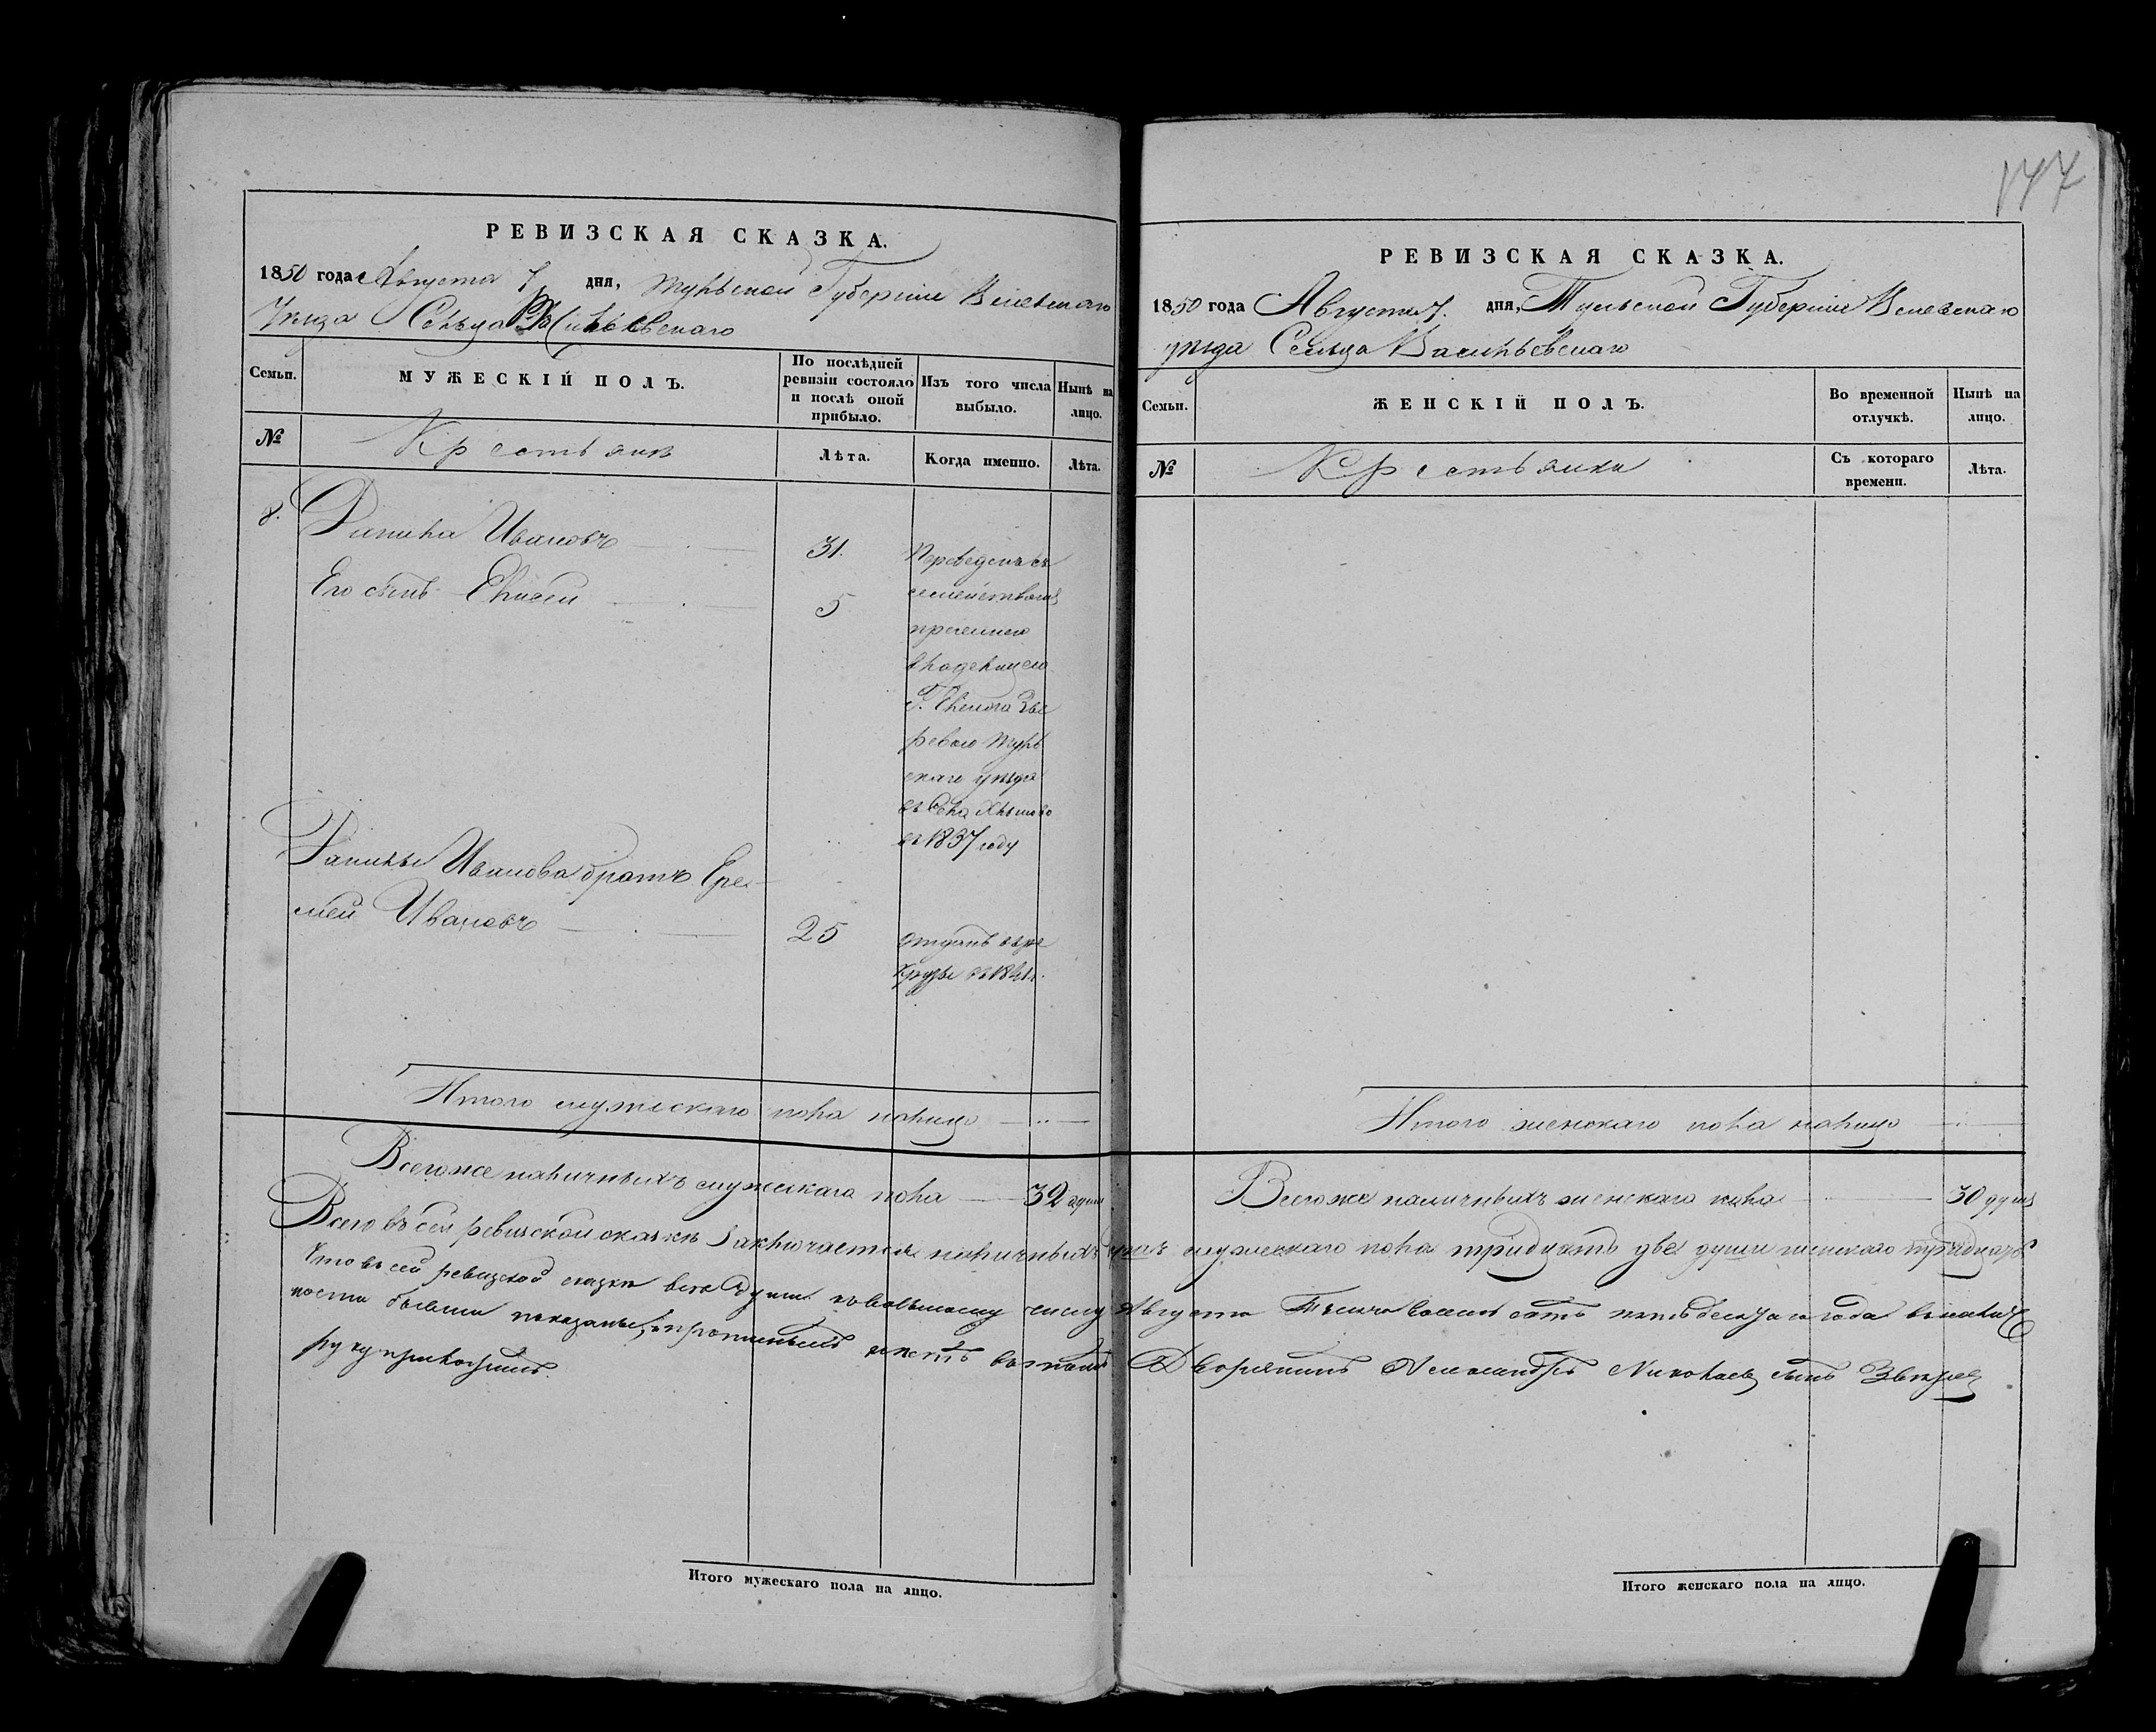 177
РЕВИЗСКАЯ СКАЗКА.
1850 года Августа 7 дня, Тульской Губерніи Веневскаго
Уѣзда Сельца Васильевскаго
Семьи. МУЖЕСКІЙ ПОЛЪ. По послѣдней ревизіи состояло и послѣ оной прибыло. Изъ того числа выбыло. Нынѣ на лицо.
№ Крестьянъ Лѣта. Когда именно. Лѣта.
8. Данила Ивановъ 31. Переведенъ съ
семействомъ
Его сынъ Елисей 5
прежнего
владельцемъ
Г.
ревымъ Туль
скаго уѣзда
въ
въ 1837 году
Данилы Иванова братъ Ере-
мей Ивановъ 25 отданъ въ ре
круты въ 1841 г.
Итого мужескаго пола налицо
Всегоже наличныхъ мужескаго пола 32 души
РЕВИЗСКАЯ СКАЗКА.
1850 года Августа 7. дня, Тульской Губерніи Веневскаго
уѣзда Сельца Васильевскаго
Семьи. ЖЕНСКІЙ ПОЛЪ. Во временной отлучкѣ. Нынѣ на лицо.
№ Крестьянки Съ котораго времени. Лѣта.
Итого женскаго пола налицо
Всегоже наличныхъ женскаго пола 30 душъ
Всего въ сей ревизской сказкѣ заключается наличныхъ душъ мужескаго пола тридцать две души женскаго тридцать
Что въ сей ревизской сказки все души по числу Августа Тысяча восемь сотъ пятьдесятаго года в налич
ности бывшіи показаны, и прописныхъ нетъ въ томъ Дворянинъ Александръ Николаевъ сынъ Зверевъ
руку приложилъ.
Итого мужескаго пола на лицо.
Итого женскаго пола на лицо.